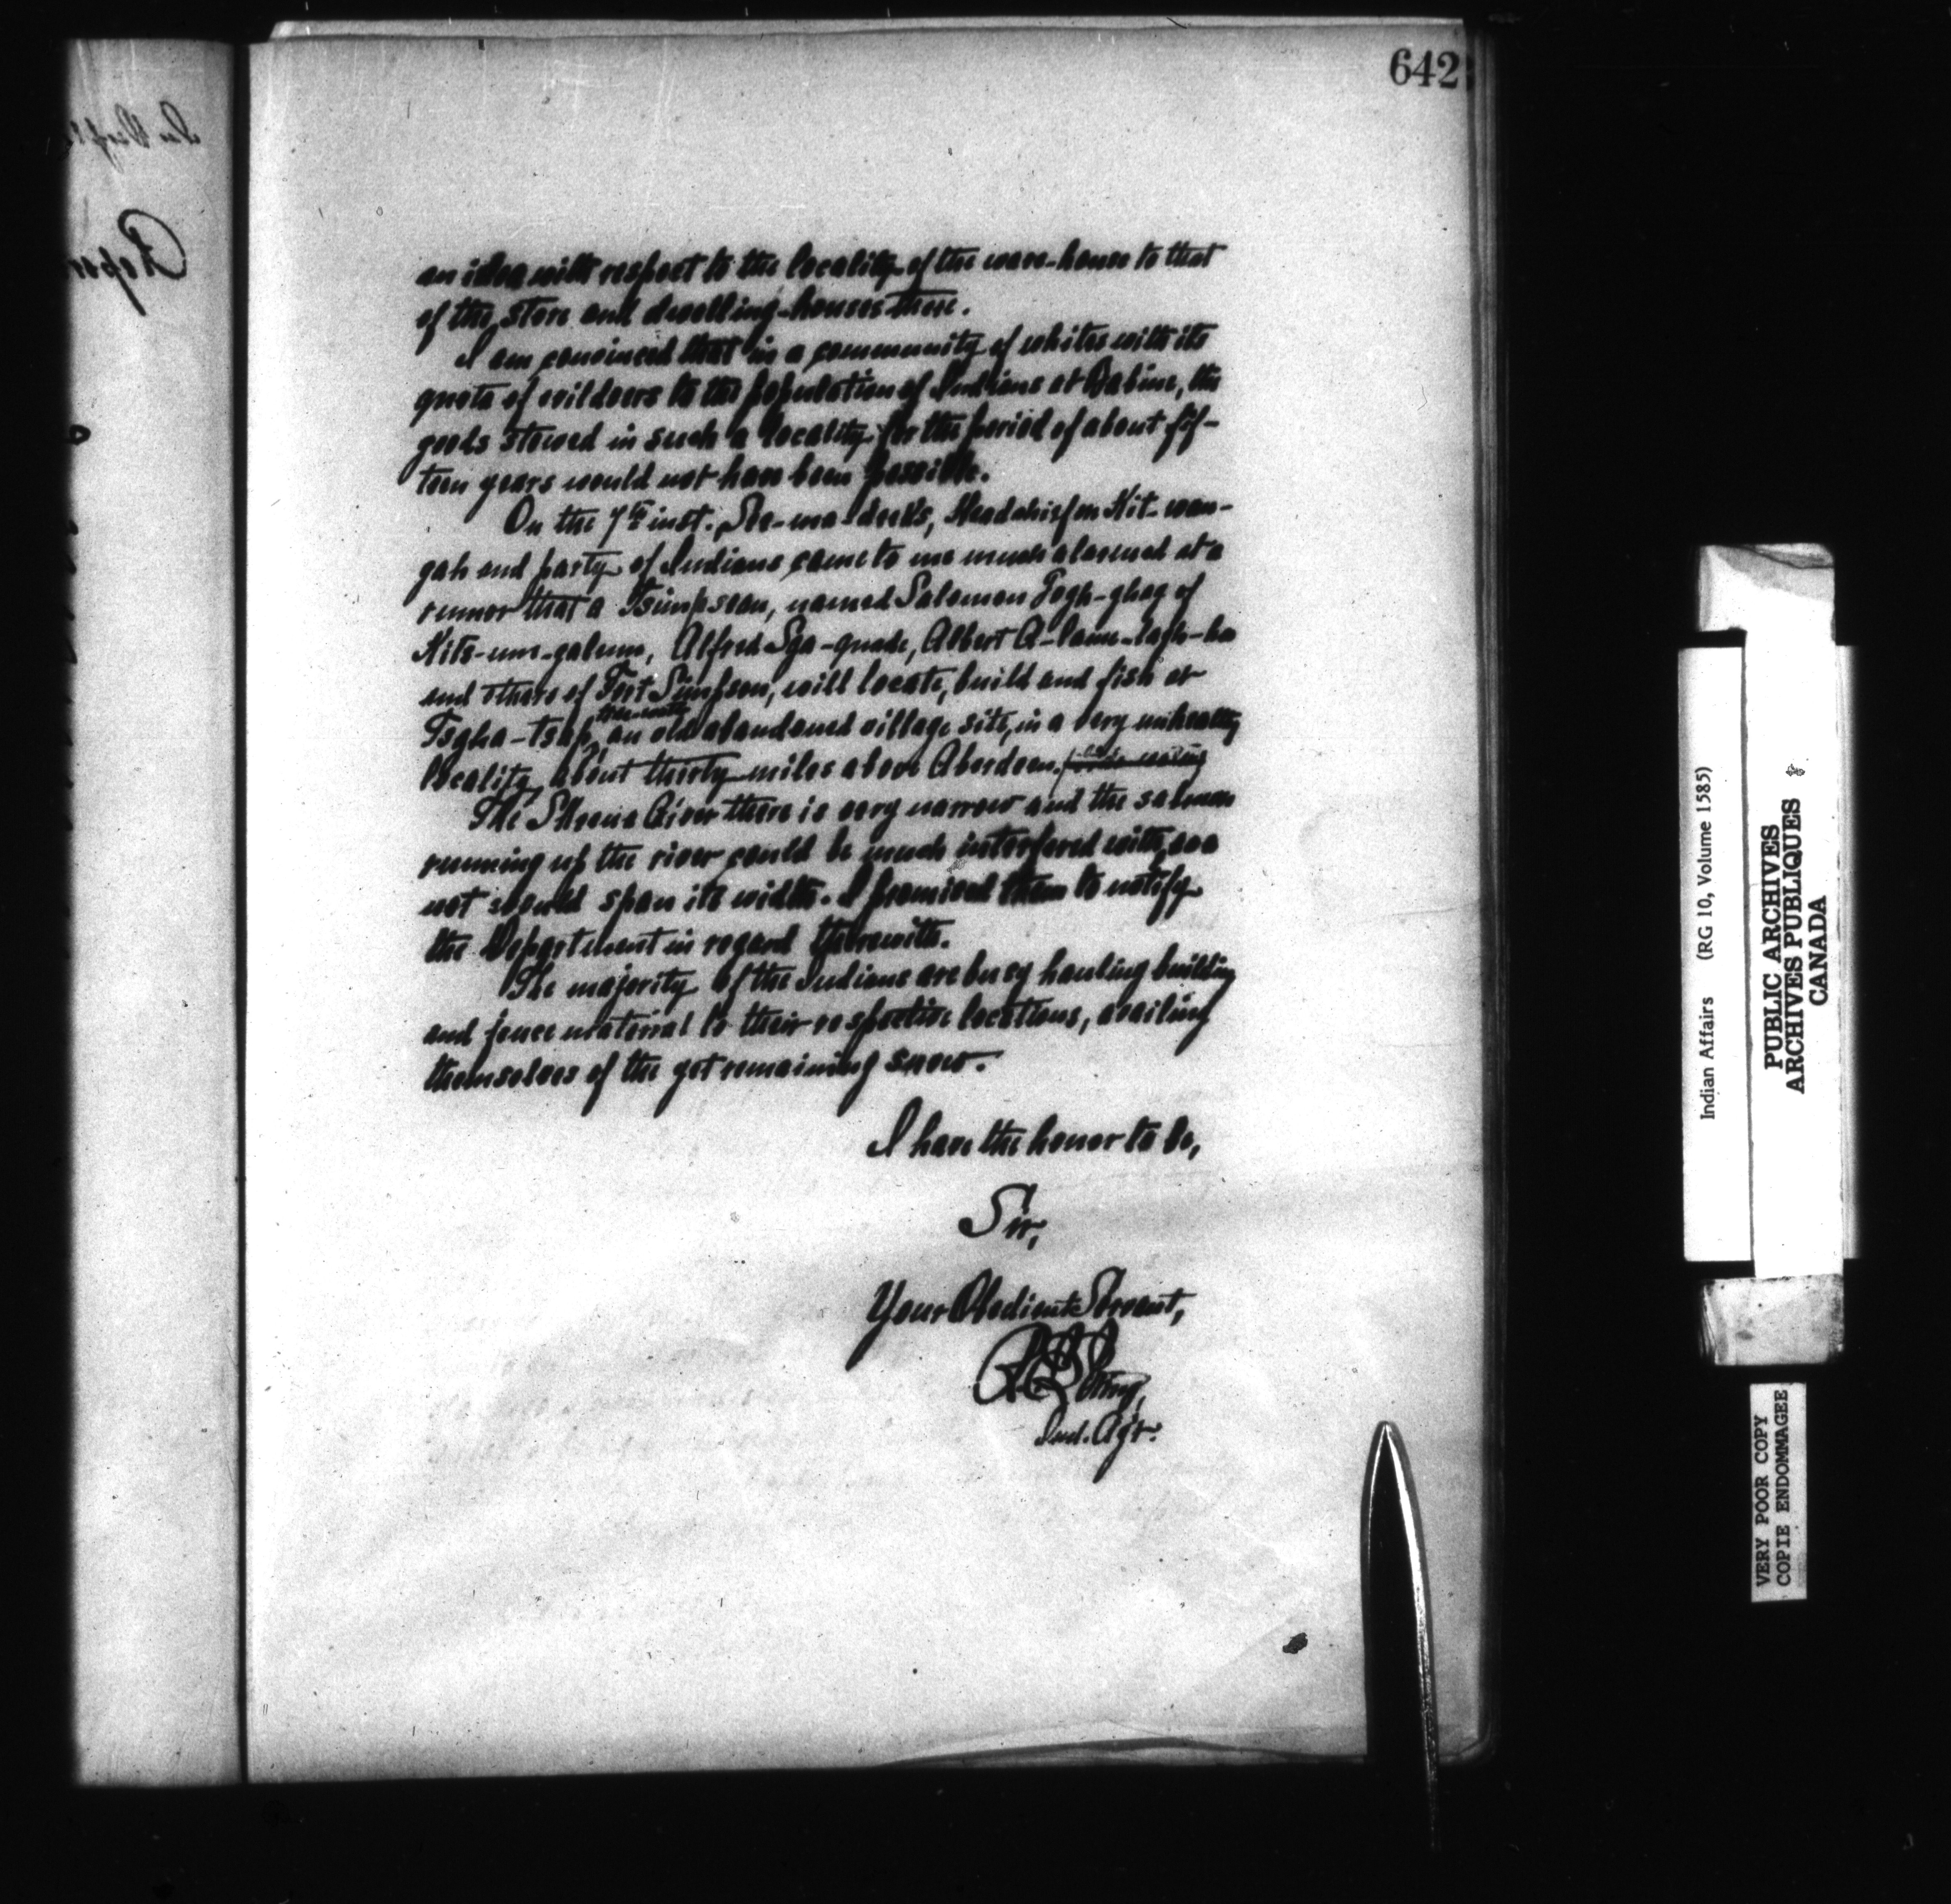 642
an idea with respect to the locality of the ware-house to that
of the store and dwelling-houses there.
I am convinced that in a community of whites with its
quota of evildoers to the population of Indians at Babine, the
goods stowed in such a locality for the period of about fif-
teen years would not have been possible.
On the 7th inst. Headchief on Kit-wan-
gah and party of Indians came to me much alarmed at a
rumor that a Tsimpsean, named Salomon of
Kits-um-galum, Alfred Sga-guade, Albert
and others of Fort Simpson, will locate, build and fish at
Tsgha-tsap, an old abandoned village site, in a very unhealthy
locality, about thirty miles above Aberdeen.
The Skeena River there is very narrow and the salmon
running up the river could be much interfered with, as a
net would span its width. I promised them to notify
the Department in regard therewith.
The majority of the Indians are busy hauling building
and fence material to their respective locations, availing
themselves of the yet remaining snow.
I have the honor to be,
Sir,
Your Obedient Servant,
R E Loring,
Ind. Agt.
Indian Affairs (RG 10, Volume 1585)
PUBLIC ARCHIVES
ARCHIVES PUBLIQUES
CANADA
VERY POOR COPY
COPIE ENDOMMAGEE